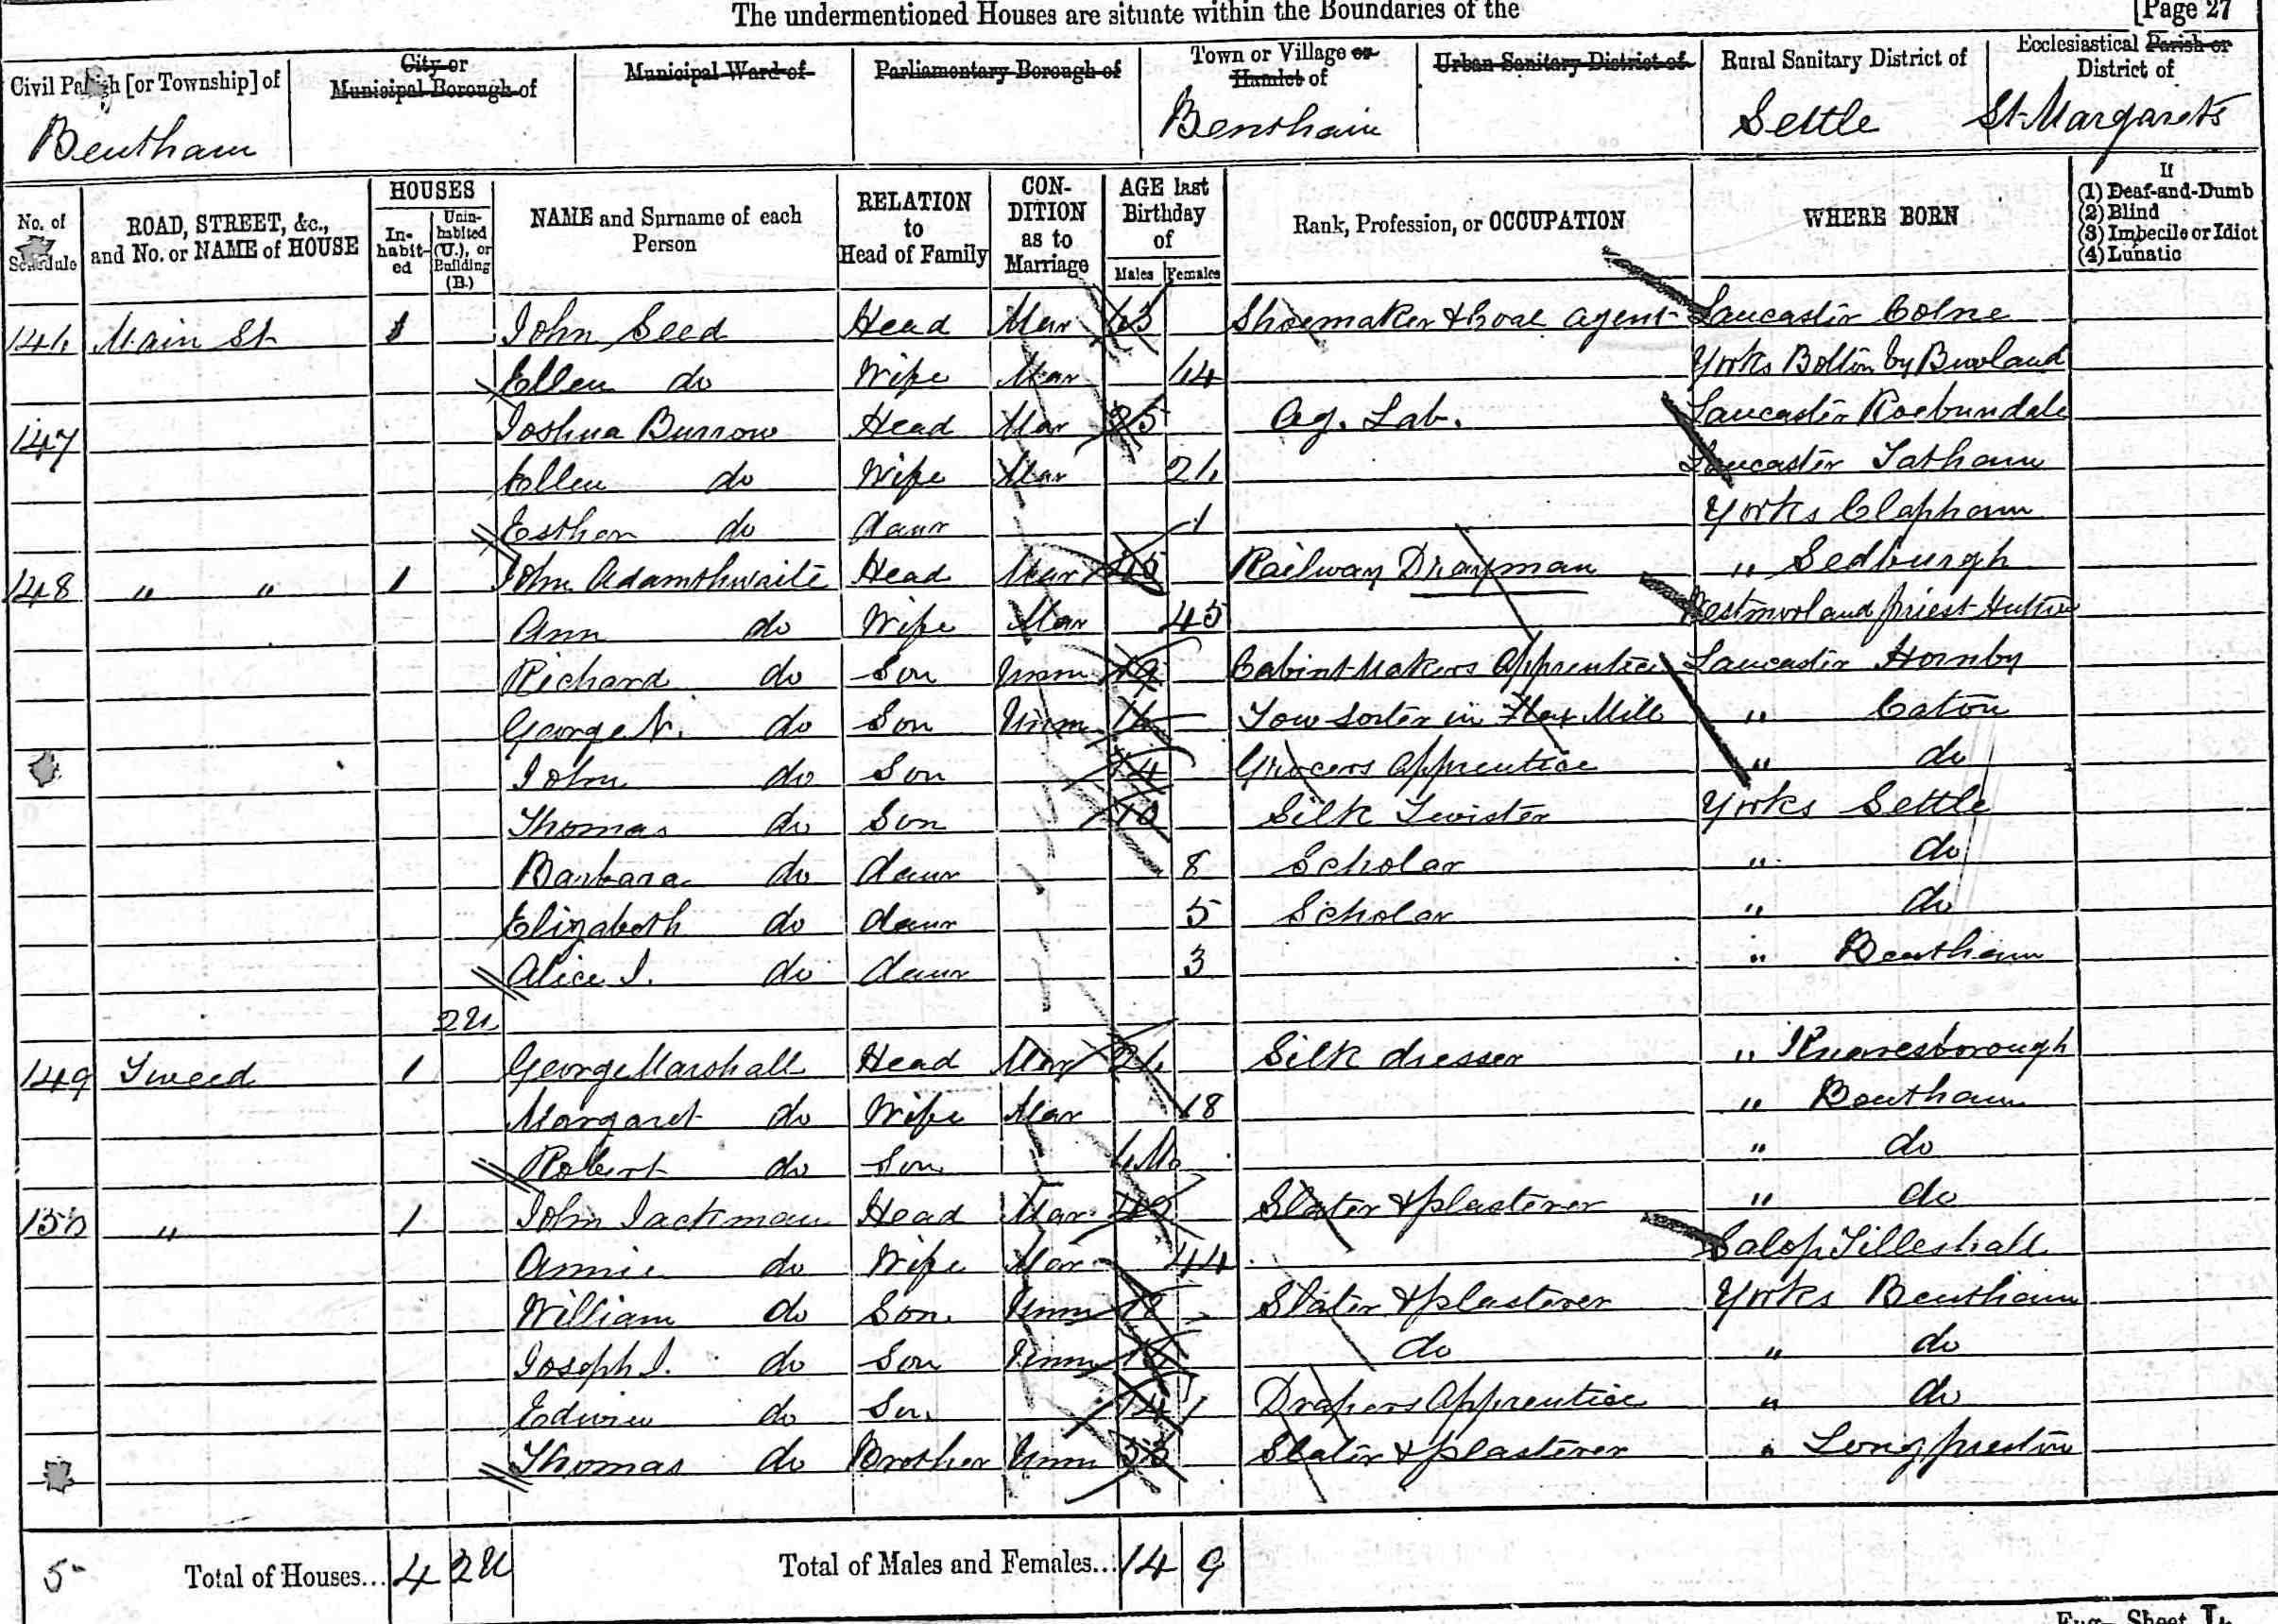 The undermentioned Houses are situate within the Boundaries of the [Page 27
Civil Parish [or Township] of City or Municipal Borough of Municipal Ward of Parliamentary Borough of Town or Village or Hamlet of Urban Sanitary District of Rural Sanitary District of Ecclesiastical Parish or District of
Bentham Bentham Settle St Margarets
No. of Schedule ROAD, STREET, &c., and No. or NAME of HOUSE HOUSES Inhabited Uninhabited (U.), or Building (B.) NAME and Surname of each Person RELATION to Head of Family CONDITION as to Marriage AGE last Birthday of Males Females Rank, Profession, or OCCUPATION WHERE BORN If (1) Deaf-and-Dumb (2) Blind (3) Imbecile or Idiot (4) Lunatic
146 Main St 1 John Seed Head Mar 63 Shoemaker & Coal agent Lancaster Colne
Ellen do Wife Mar 64 Yorks Bolton by Bowland
147 Joshua Burrow Head Mar 25 Ag. Lab. Lancaster Roeburndale
Ellen do Wife Mar 26 Lancaster Tatham
Esther do daur 1 Yorks Clapham
148 " " 1 John Adamthwaite Head Mar Railway Drayman " Sedburgh
Ann do Wife Mar 45 Westmorland Priest Hutton
Richard do Son Unm 19 Cabint Makers Apprentice Lancaster Hornby
George N. do Son Unm 16 Tow Sorter in Flax Mill " Caton
John do Son 14 Grocers Apprentice " do
Thomas do Son 10 Silk Twister Yorks Settle
Barbara do daur 8 Scholar " do
Elizabeth do daur 5 Scholar " do
Alice I. do daur 3 " Bentham
2U
149 Tweed 1 George Marshall Head Mar 26 Silk dresser " Knaresborough
Margaret do Wife Mar 18 " Bentham
Robert do Son 6 Mo " do
150 " 1 John Jackman Head Mar 49 Slater & plasterer " do
Annie do Wife Mar 44 Salop Lilleshall
William do Son Unm 18 Slater & plasterer Yorks Bentham
Joseph I. do Son Unm 16 do " do
Edwin do Son 14 Drapers Apprentice " do
Thomas do Brother Unm 53 Slater & plasterer " Longpreston
5 Total of Houses... 4 2U Total of Males and Females... 14 9
Eng—Sheet